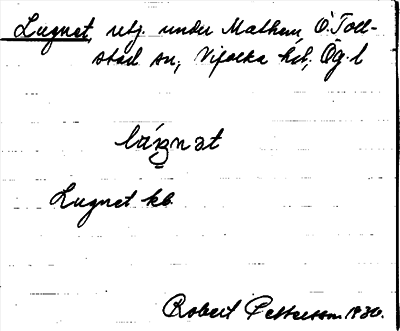 Lugnet, utj. under Mathem, Ö. Toll-
stad sn, Vifolka hd, Ög. l
lúgnat
Lugnet kb
Robert Pettersson 1930.